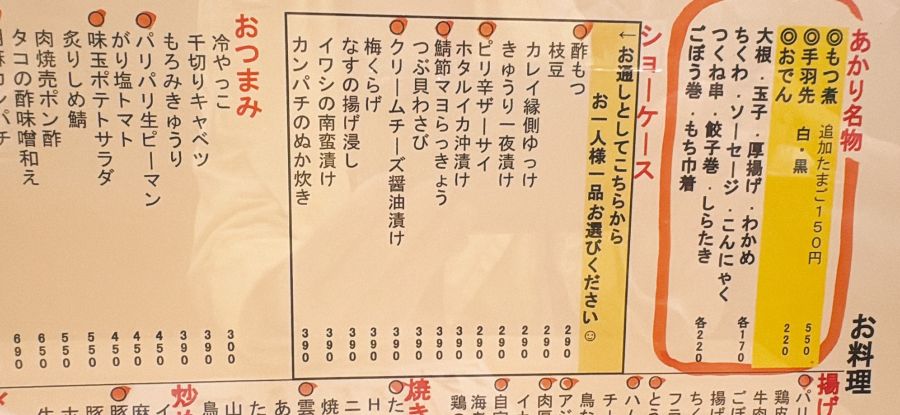 お料理
あかり名物
◎もつ煮 追加たまご150円 550
◎手羽先 白・黒 220
◎おでん
大根．玉子．厚揚げ．わかめ
ちくわ．ソーセージ．こんにゃく 各170
つくね串．餃子巻．しらたき
ごぼう巻．もち巾着 各220
ショーケース
←お通しとしてこちらから
お一人様一品お選びください☺
酢もつ 290
枝豆 290
カレイ縁側ゆっけ 290
きゅうり一夜漬け 290
ピリ辛ザーサイ 290
ホタルイカ沖漬け 390
鯖節マヨらっきょう 390
つぶ貝わさび 390
クリームチーズ醤油漬け 390
梅くらげ 390
なすの揚げ浸し 390
イワシの南蛮漬け 390
カンパチのぬか炊き 390
おつまみ
冷やっこ 300
千切りキャベツ 390
もろみきゅうり 390
パリパリ生ピーマン 450
がり塩トマト 450
味玉ポテトサラダ 550
炙りしめ鯖 550
肉焼売ポン酢 650
タコの酢味噌和え 690
揚げ
焼き